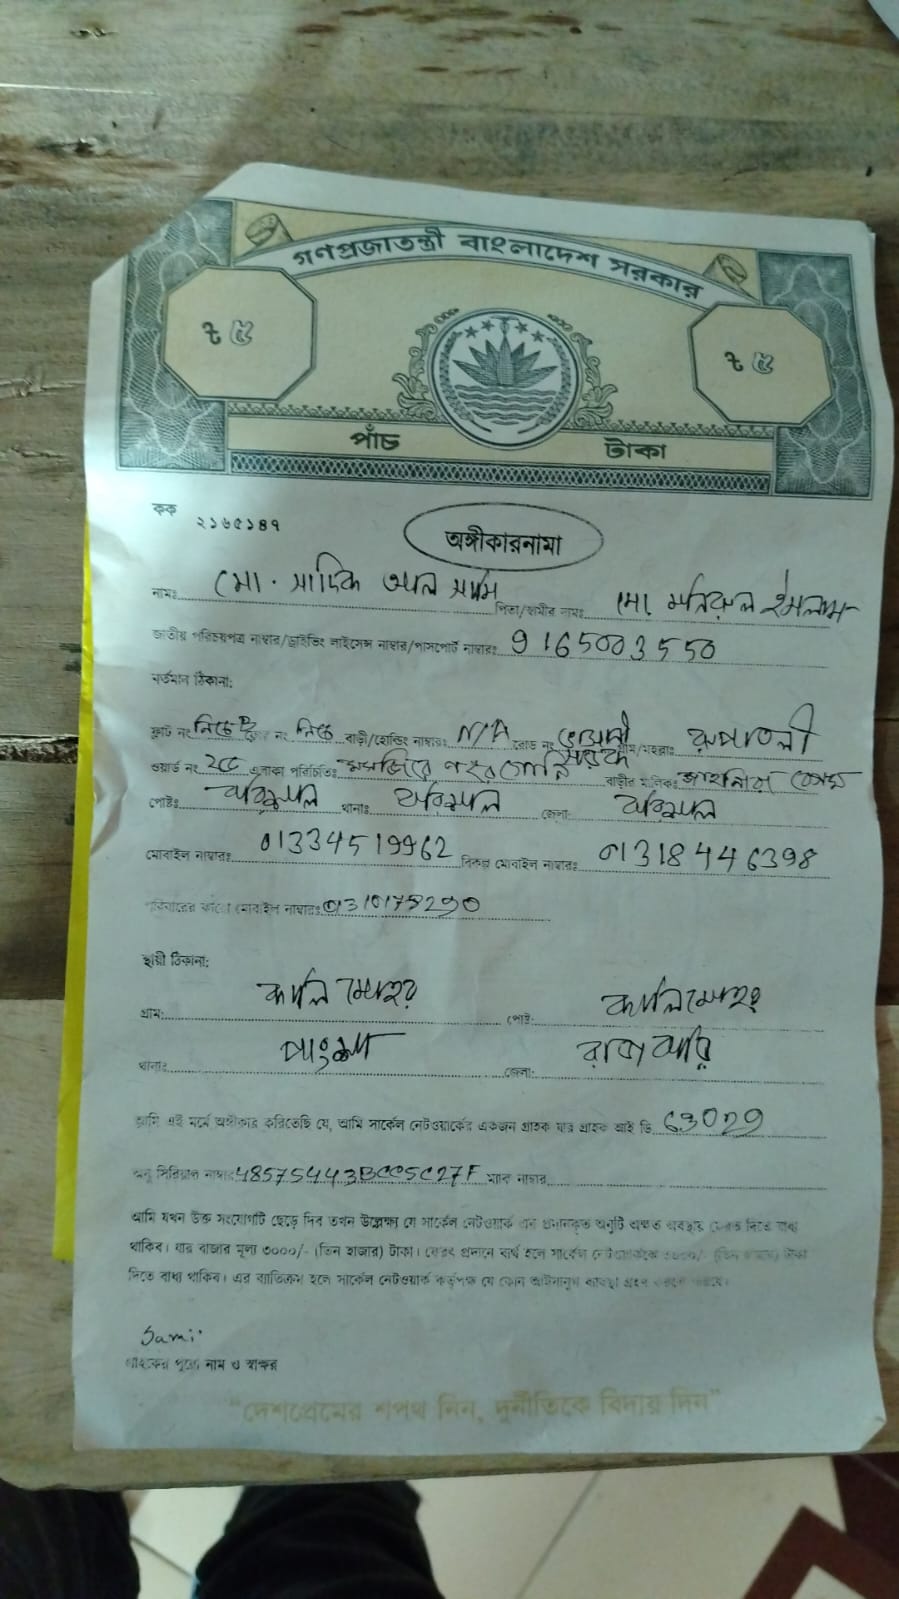 গণপ্রজাতন্ত্রী বাংলাদেশ সরকার
৳ ৫ ৳ ৫
পাঁচ টাকা
কক ২১৬৫১৪৭
অঙ্গীকারনামা
নামঃ মো. সাদিক আল সামি পিতা/স্বামীর নামঃ মো. মনিরুল ইসলাম
জাতীয় পরিচয়পত্র নাম্বার/ড্রাইভিং লাইসেন্স নাম্বার/পাসপোর্ট নাম্বারঃ 9165003550
বর্তমান ঠিকানা:
ফ্লাট নং নিচে নং নিচে বাড়ী/হোল্ডিং নাম্বারঃ N/A রোড নং সরক গ্রাম/মহল্লাঃ রুপাতলী
ওয়ার্ড নং ২৫ এলাকা পরিচিতিঃ মসজিদের বাড়ীর মালিকঃ বেগম
পোষ্টঃ বরিশাল থানাঃ বরিশাল জেলা: বরিশাল
মোবাইল নাম্বারঃ 01334519962 বিকল্প মোবাইল নাম্বারঃ 01318446398
পরিবারের কারো মোবাইল নাম্বারঃ
স্থায়ী ঠিকানা:
গ্রাম: কালিমোহর পোষ্ট: কালিমোহর
থানাঃ পাংশা জেলা: রাজবাড়ি
আমি এই মর্মে অঙ্গীকার করিতেছি যে, আমি সার্কেল নেটওয়ার্কের একজন গ্রাহক যার গ্রাহক আই ডি 63029
অনু সিরিয়াল নাম্বার 48575443BCC5C27F ম্যাক নাম্বার
আমি যখন উক্ত সংযোগটি ছেড়ে দিব তখন উল্লেক্ষ্য যে সার্কেল নেটওয়ার্ক এর প্রদানকৃত অনুটি অক্ষত অবস্থায় ফেরত দিতে বাধ্য
থাকিব। যার বাজার মূল্য ৩০০০/- (তিন হাজার) টাকা। ফেরৎ প্রদানে ব্যর্থ হলে সার্কেল নেটওয়ার্ককে ৩০০০/- (তিন হাজার) টাকা
দিতে বাধ্য থাকিব। এর ব্যতিক্রম হলে সার্কেল নেটওয়ার্ক কর্তৃপক্ষ যে কোন আইনানুগ ব্যবস্থা গ্রহণ করতে পারবে।
Sami
গ্রাহকের পুরো নাম ও স্বাক্ষর
"দেশপ্রেমের শপথ নিন, দুর্নীতিকে বিদায় দিন"